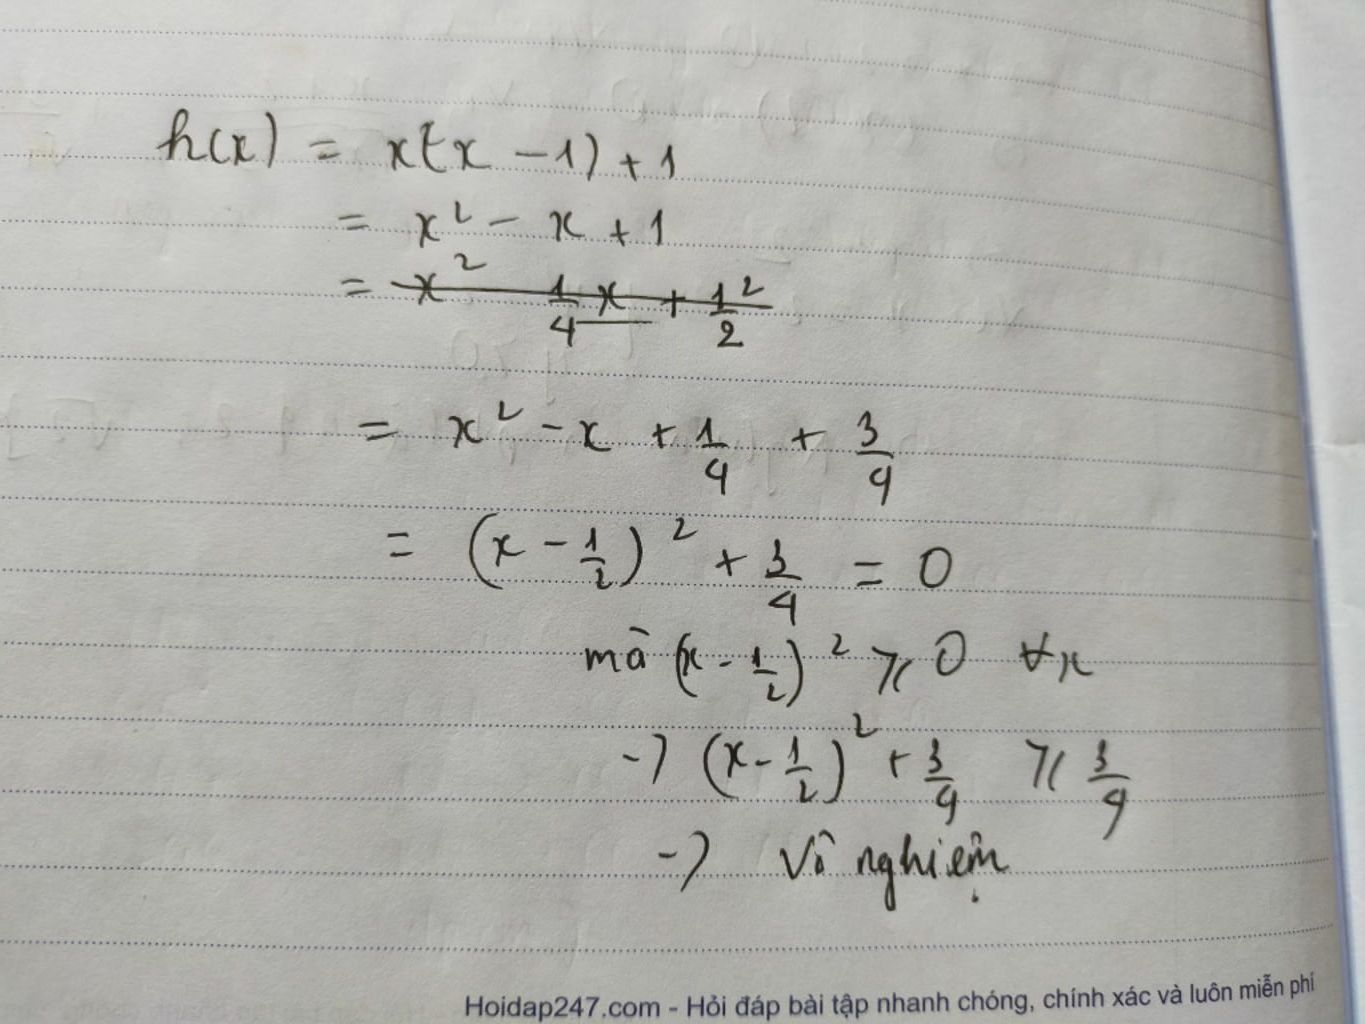 h(x) = x(x - 1) + 1
= x² - x + 1
= x² 1/4 x + 1/2²
= x² - x + 1/4 + 3/4
= (x - 1/2)² + 3/4 = 0
mà (x - 1/2)² ≥ 0 ∀x
-> (x - 1/2)² + 3/4 ≥ 3/4
-> Vô nghiệm
Hoidap247.com - Hỏi đáp bài tập nhanh chóng, chính xác và luôn miễn phí